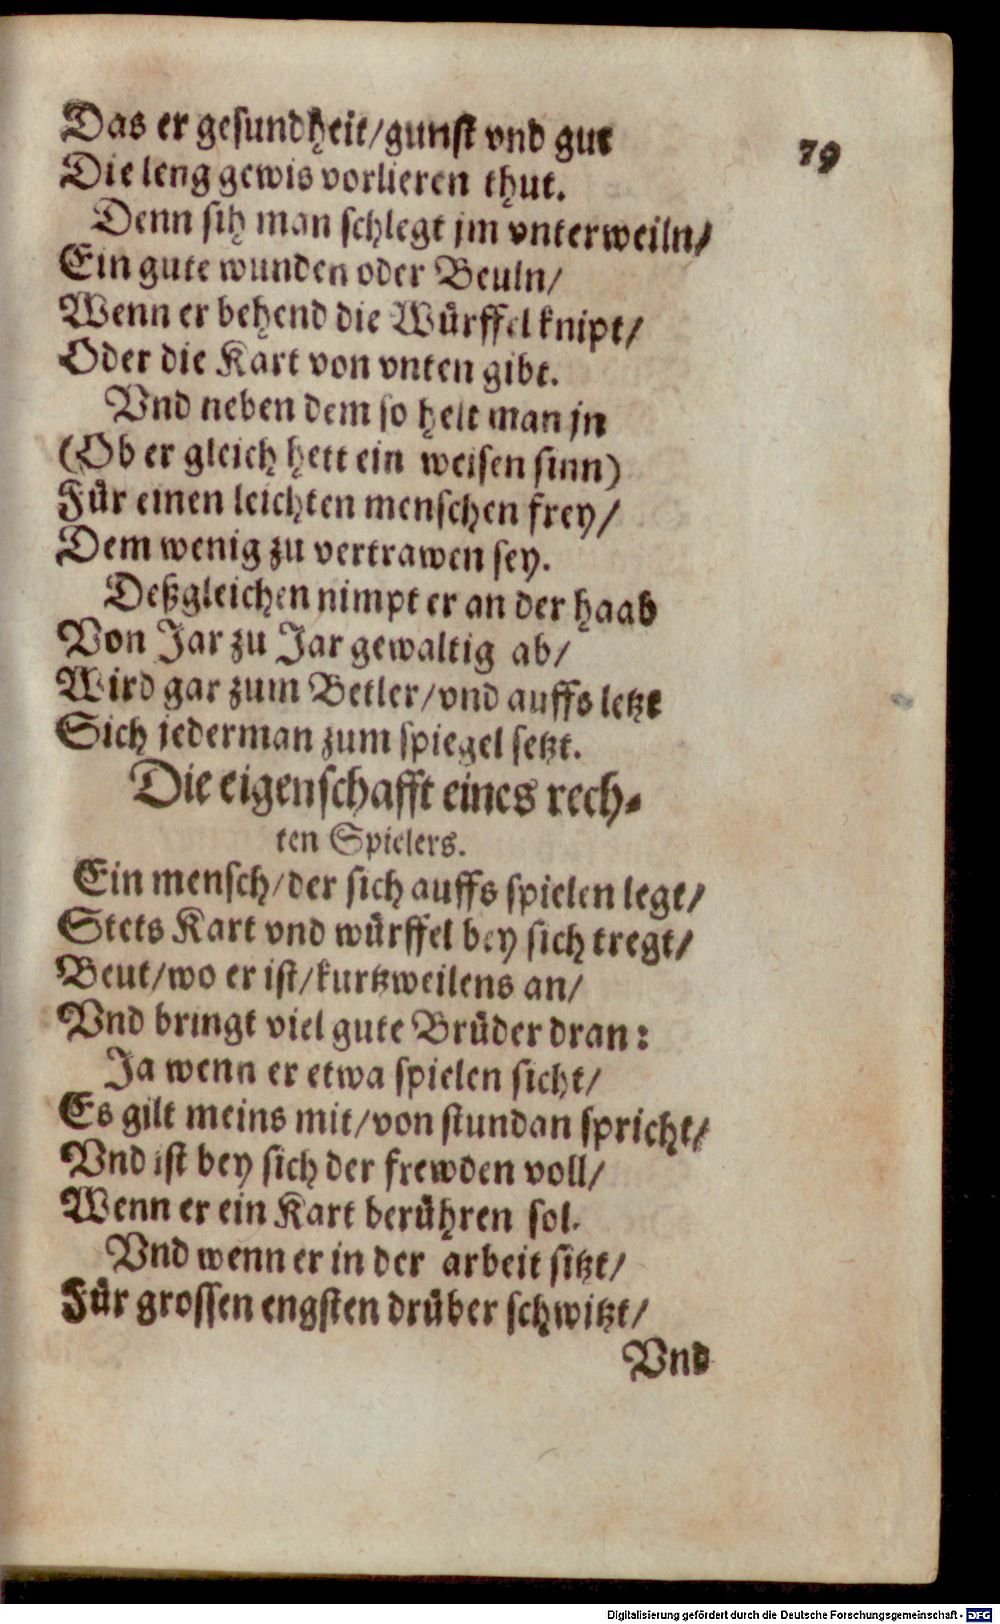 79
Das er gesundheit/gunst vnd gut
Die leng gewis vorlieren thut.
Denn sih man schlegt jm vnterweiln/
Ein gute wunden oder Beuln/
Wenn er behend die Würffel knipt/
Oder die Kart von vnten gibt.
Vnd neben dem so helt man jn
(Ob er gleich hett ein weisen sinn)
Für einen leichten menschen frey/
Dem wenig zu vertrawen sey.
Deßgleichen nimpt er an der haab
Von Jar zu Jar gewaltig ab/
Wird gar zum Betler/vnd auffs letzt
Sich jederman zum spiegel setzt.
Die eigenschafft eines rech-
ten Spielers.
Ein mensch/der sich auffs spielen legt/
Stets Kart vnd würffel bey sich tregt/
Beut/wo er ist/kurtzweilens an/
Vnd bringt viel gute Brüder dran:
Ja wenn er etwa spielen sicht/
Es gilt meins mit/von stundan spricht/
Vnd ist bey sich der frewden voll/
Wenn er ein Kart berühren sol.
Vnd wenn er in der arbeit sitzt/
Für grossen engsten drüber schwitzt/
Vnd
Digitalisierung gefördert durch die Deutsche Forschungsgemeinschaft - DFG